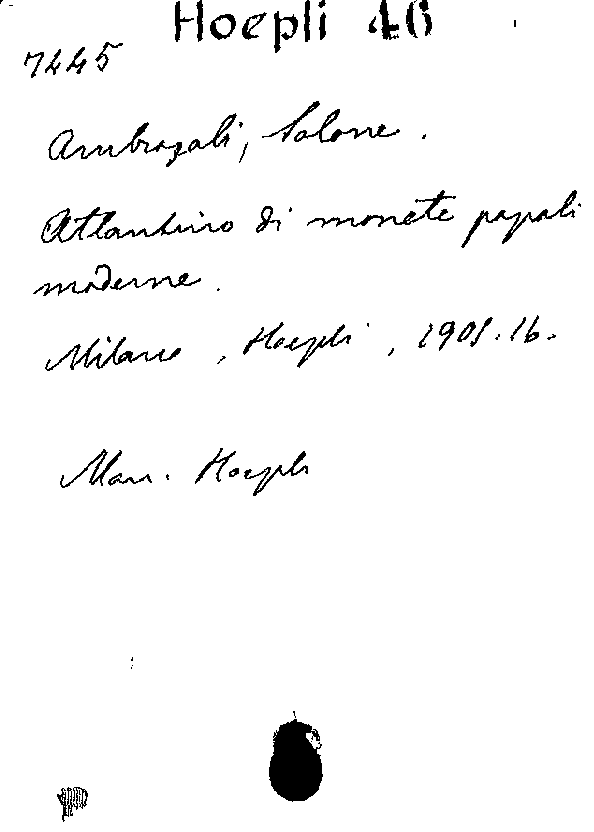 Hoepli 46
7445
Ambrosoli, Solone.
Atlantino di monete papali
moderne.
Milano, Hoepli, 1905.16.
Man. Hoepli